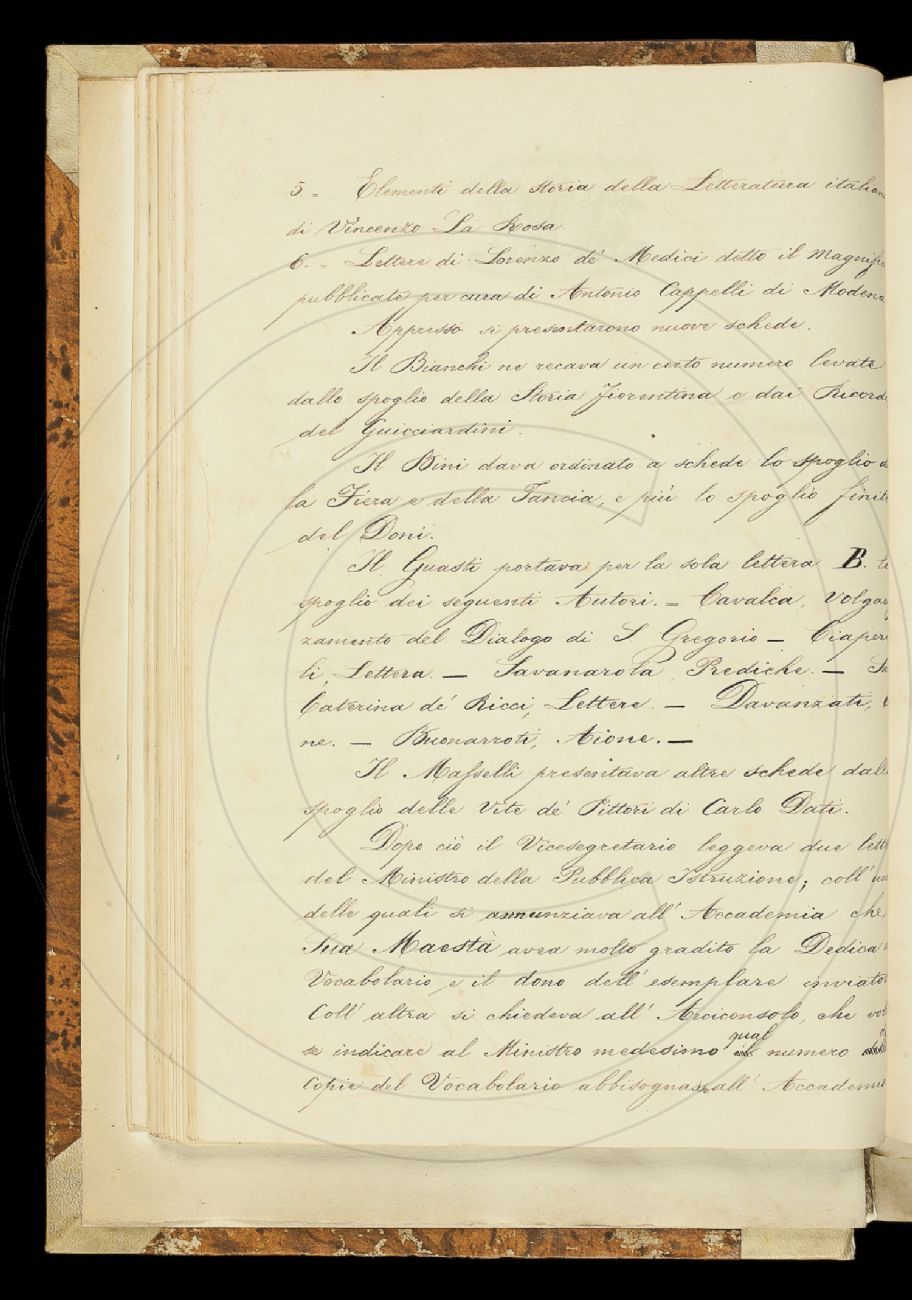 5. = Elementi della storia della Letteratura italian
di Vincenzo La Rosa.
6. = Lettere di Lorenzo de' Medici detto il Magnific
pubblicate per cura di Antonio Cappelli di Modena
Appresso si presentarono nuove schede.
Il Bianchi ne recava un certo numero levate
dallo spoglio della Storia Fiorentina e dai Ricord
del Guicciardini.
Il Bini dava ordinato a schede lo spoglio d
la Fiera e della Tancia, e più lo spoglio finit
del Doni.
Il Guasti portava per la sola lettera B. l
spoglio dei seguenti Autori. = Cavalca, Volgar
zamento del Dialogo di S Gregorio — Ciaper
li, Lettera. — Savanarola, Prediche. — Sa
Caterina de' Ricci, Lettere. — Davanzati,
ne. — Buonarroti, Aione. —
Il Masselli presentava altre schede dall
spoglio delle Vite de' Pittori di Carlo Dati.
Dopo ciò il Vicesegretario leggeva due lett
del Ministro della Pubblica Istruzione; coll' un
delle quali si annunziava all' Accademia che
Sua Maestà avea molto gradito la Dedica
Vocabolario e il dono dell' esemplare inviato
Coll' altra si chiedeva all' Arciconsolo, che vol
se indicare al Ministro medesimo qual numero
Copie del Vocabolario abbisognasse all' Accademia